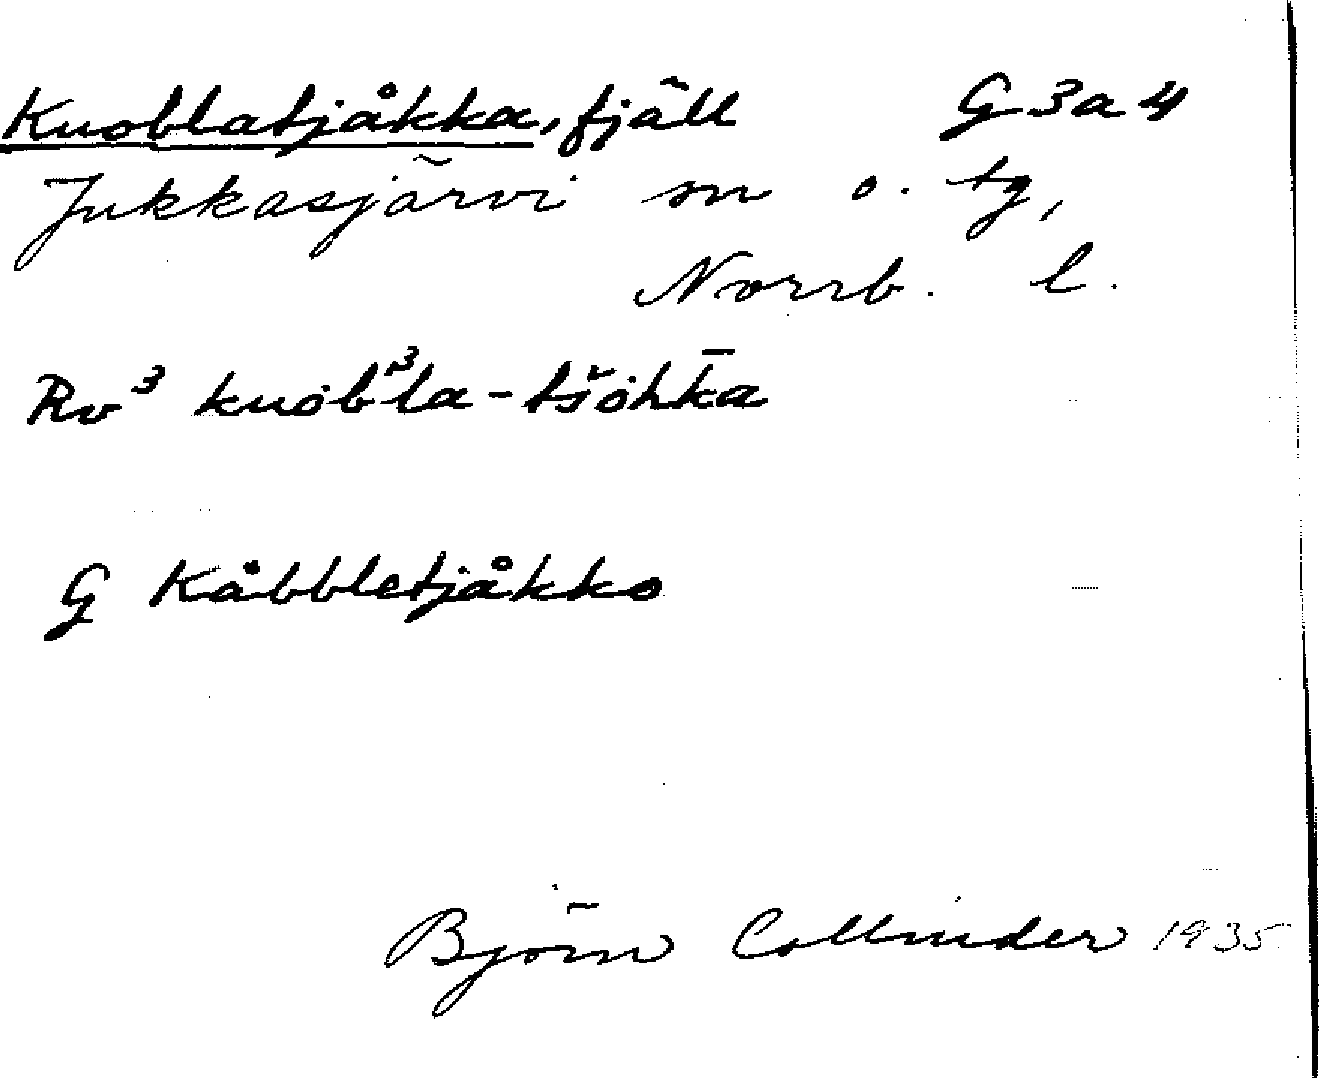 Kuoblatjåkka, fjäll G 3 a 4
Jukkasjärvi sn o. tg,
Norrb. l.
Rv³ kuobˈ³la-tšohk̄a
G Kåbbletjåkko
Björn Collinder 1935